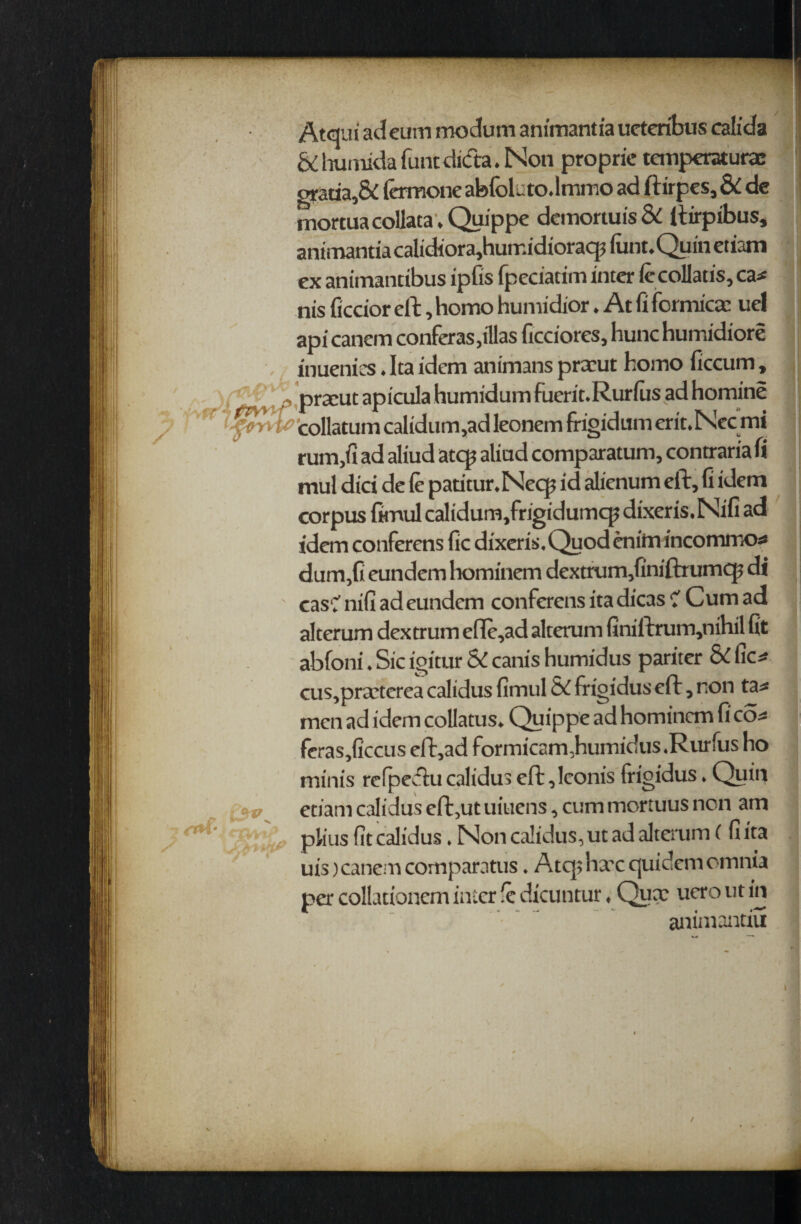 Atqui ad eum modum animantia ueteribus calida
& humida sunt dicta. Non proprie temperaturæ
gratia,& sermone absoluto.Immo ad stirpes, & de
mortua collata. Quippe demortuis & stirpibus,
animantia calidiora,humidioraqꝫ sunt.Quin etiam
ex animantibus ipsis speciatim inter se collatis, ca⸗
nis siccior est, homo humidior. At si formicæ uel
api canem conferas,illas sicciores, hunc humidiorē
inuenies. Ita idem animans præut homo siccum,
præut apicula humidum fuerit.Rursus ad hominē
collatum calidum,ad leonem frigidum erit.Nec mi
rum,si ad aliud atqꝫ aliud comparatum, contraria si
mul dici de se patitur.Neqꝫ id alienum est, si idem
corpus simul calidum,frigidumqꝫ dixeris.Nisi ad
idem conferens sic dixeris.Quod enim incommo⸗
dum,si eundem hominem dextrum,sinistrumqꝫ di
cas? nisi ad eundem conferens ita dicas? Cum ad
alterum dextrum esse,ad alterum sinistrum,nihil sit
absoni. Sic igitur & canis humidus pariter & sic⸗
cus,præterea calidus simul & frigidus est, non ta⸗
men ad idem collatus. Quippe ad hominem si cō⸗
feras,siccus est,ad formicam,humidus.Rursus ho
minis respectu calidus est, leonis frigidus. Quin
etiam calidus est,ut uiuens, cum mortuus non am
plius sit calidus. Non calidus, ut ad alterum ( si ita
uis ) canem comparatus. Atqꝫ hæc quidem omnia
per collationem inter se dicuntur. Quæ uero ut in
animantiū